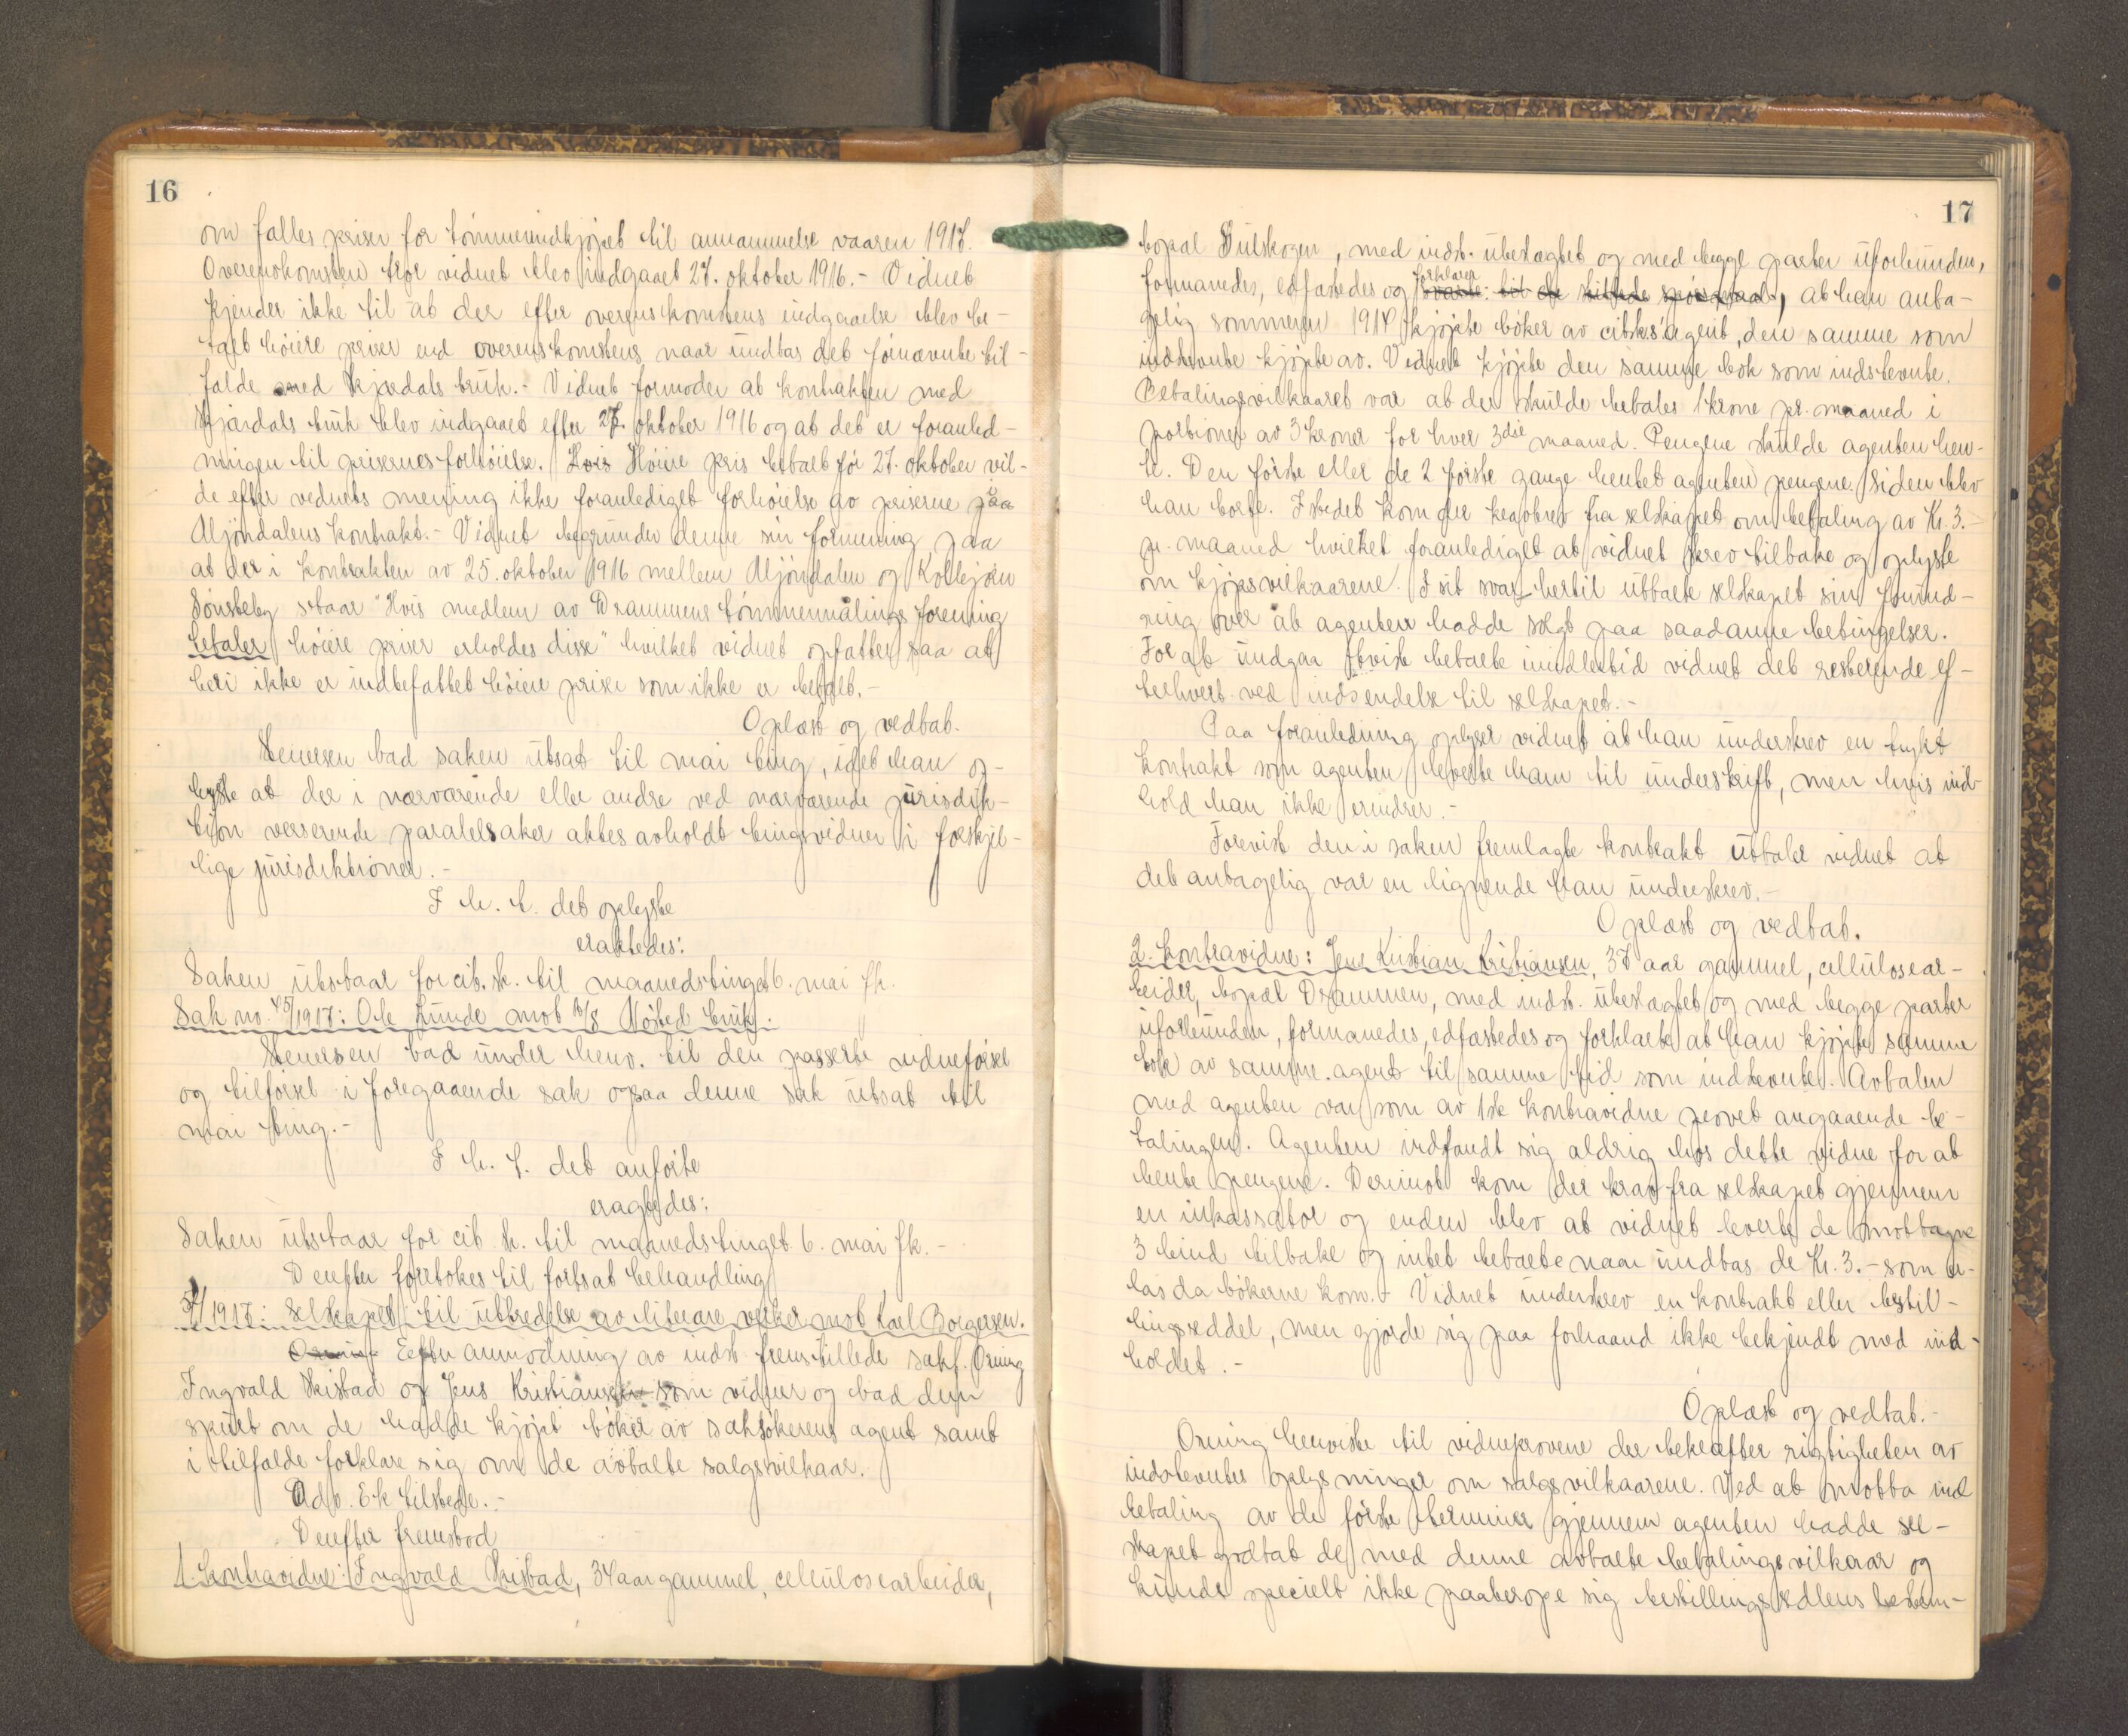 16
om fælles priser for tømmerindkjøpet til annammelse vaaren 1917.
Overenskomsten tror vidnet blev indgaaet 27. oktober 1916. - Vidnet
kjender ikke til at der efter overenskomstens indgaaelse blev be-
talt høiere priser end overenskomstens naar undtas det førnævnte til-
fælde med Skjærdals bruk. - Vidnet formoder at kontrakten med
Skjærdals bruk blev indgaaet efter 27. oktober 1916 og at det er foranled-
ningen til prisernes forhøielse. Hvis Høiere pris betalt før 27. oktober vil-
de efter vidnets mening ikke foranlediget forhøielse av priserne paa
Mjøndalens kontrakt. - Vidnet begrunder denne sin formening paa
at der i kontrakten av 25. oktober 1916 mellem Mjøndalen og Kolbjørn
Sønsteby staar "Hvis medlem av Drammens tømmermålings forening
betaler høiere priser erholdes disse" hvilket vidnet opfatter saa at
heri ikke er indbefattet høiere priser som ikke er betalt. -
Oplæst og vedtat.
Stenersen bad saken utsat til mai ting, idet han op-
lyste at der i nærværende eller andre ved nærværende jurisdik-
tion verserende paralelsaker aktes avholdt tingsvidner i forskjel-
lige jurisdiktioner. -
I h. t. det oplyste
eragtedes:
Saken utstaar for cit. sk. til maanedstinget 6. mai fk.
Sak no. 45/1917: Ole Lunde mot A/S Nøsted bruk.
Stenersen bad under henv. til den passerte vidneførsel
og tilførsel i foregaaende sak ogsaa denne sak utsat til
mai ting. -
I h. t. det anførte
eragtedes:
Saken utstaar for cit. sk. til maanedstinget 6. mai fk. -
Derefter foretokes til fortsat behandling
/1917: Selskapet til utbredelse av literære verker mot Karl Borgersen.
Orning Efter anmodning av indst. fremstillede sakf. Orning
Ingvald Skistad og Jens Kristiansen som vidner og bad dem
spurt om de hadde kjøpt bøker av saksøkerens agent samt
i tilfælde forklare sig om de avtalte salgsvilkaar.
Adv. Ek tilstede. -
Derefter fremstod
1. kontravidne: Ingvald Skistad, 34 aar gammel, cellulosearbeider,
17
bopæl Gulskogen, med indst. ubeslægtet og med begge parter uforbunden,
forklarer
formanedes, edfæstedes og svarte til de stillede spørsmaal, at han anta-
gelig sommeren 1914 kjøpte bøker av citsks. agent, den samme som
indstevnte kjøpte av. Vidnet kjøpte den samme bok som indstevnte.
Betalingsvilkaaret var at der skulde betales 1 krone pr. maaned i
portioner av 3 kroner for hver 3die maaned. Pengene skulde agenten hen-
te. Den første eller de 2 første gange hentet agenten pengene. Siden blev
han borte. Istedet kom der kravbrev fra selskapet om betaling av Kr. 3. -
pr. maaned hvilket foranlediget at vidnet skrev tilbake og oplyste
om kjøpsvilkaarene. I sit svar hertil uttalte selskapet sin forund-
ring over at agenten hadde solgt paa saadanne betingelser.
For at undgaa tvist betalte imidlertid vidnet det resterende ef-
terhvert ved indsendelse til selskapet. -
Paa foranledning oplyser vidnet at han underskrev en trykt
kontrakt som agenten leverte ham til underskrift, men hvis ind-
hold han ikke erindrer. -
Forevist den i saken fremlagte kontrakt uttaler vidnet at
det antagelig var en lignende han underskrev. -
Oplæst og vedtat.
2. kontravidne: Jens Kristian Kristiansen, 37 aar gammel, cellulosear-
beider, bopæl Drammen, med indst. ubeslægtet og med begge parter
uforbunden, formanedes, edfæstedes og forklarte at han kjøpte samme
bok av samme agent til samme tid som indstevnte. Avtalen
med agenten var som av 1ste kontravidne prøvet angaaende be-
talingen. Agenten indfandt sig aldrig hos dette vidne for at
hente pengene. Derimot kom der krav fra selskapet gjennem
en inkassator og enden blev at vidnet leverte de mottagne
3 bind tilbake og intet betalte naar undtas de Kr. 3. - som be-
taltes da bøkerne kom. - Vidnet underskrev en kontrakt eller bestil-
lingsseddel, men gjorde sig paa forhaand ikke bekjendt med ind-
holdet. -
Oplæst og vedtat. -
Orning henviste til vidneprovene der bekræfter rigtigheten av
indstevntes oplysninger om salgsvilkaarene. Ved at motta ind
betaling av de første terminer gjennem agenten hadde sel-
skapet godtat de med denne avtalte betalingsvilkaar og
kunde specielt ikke paaberope sig bestillingssedlens bestem-